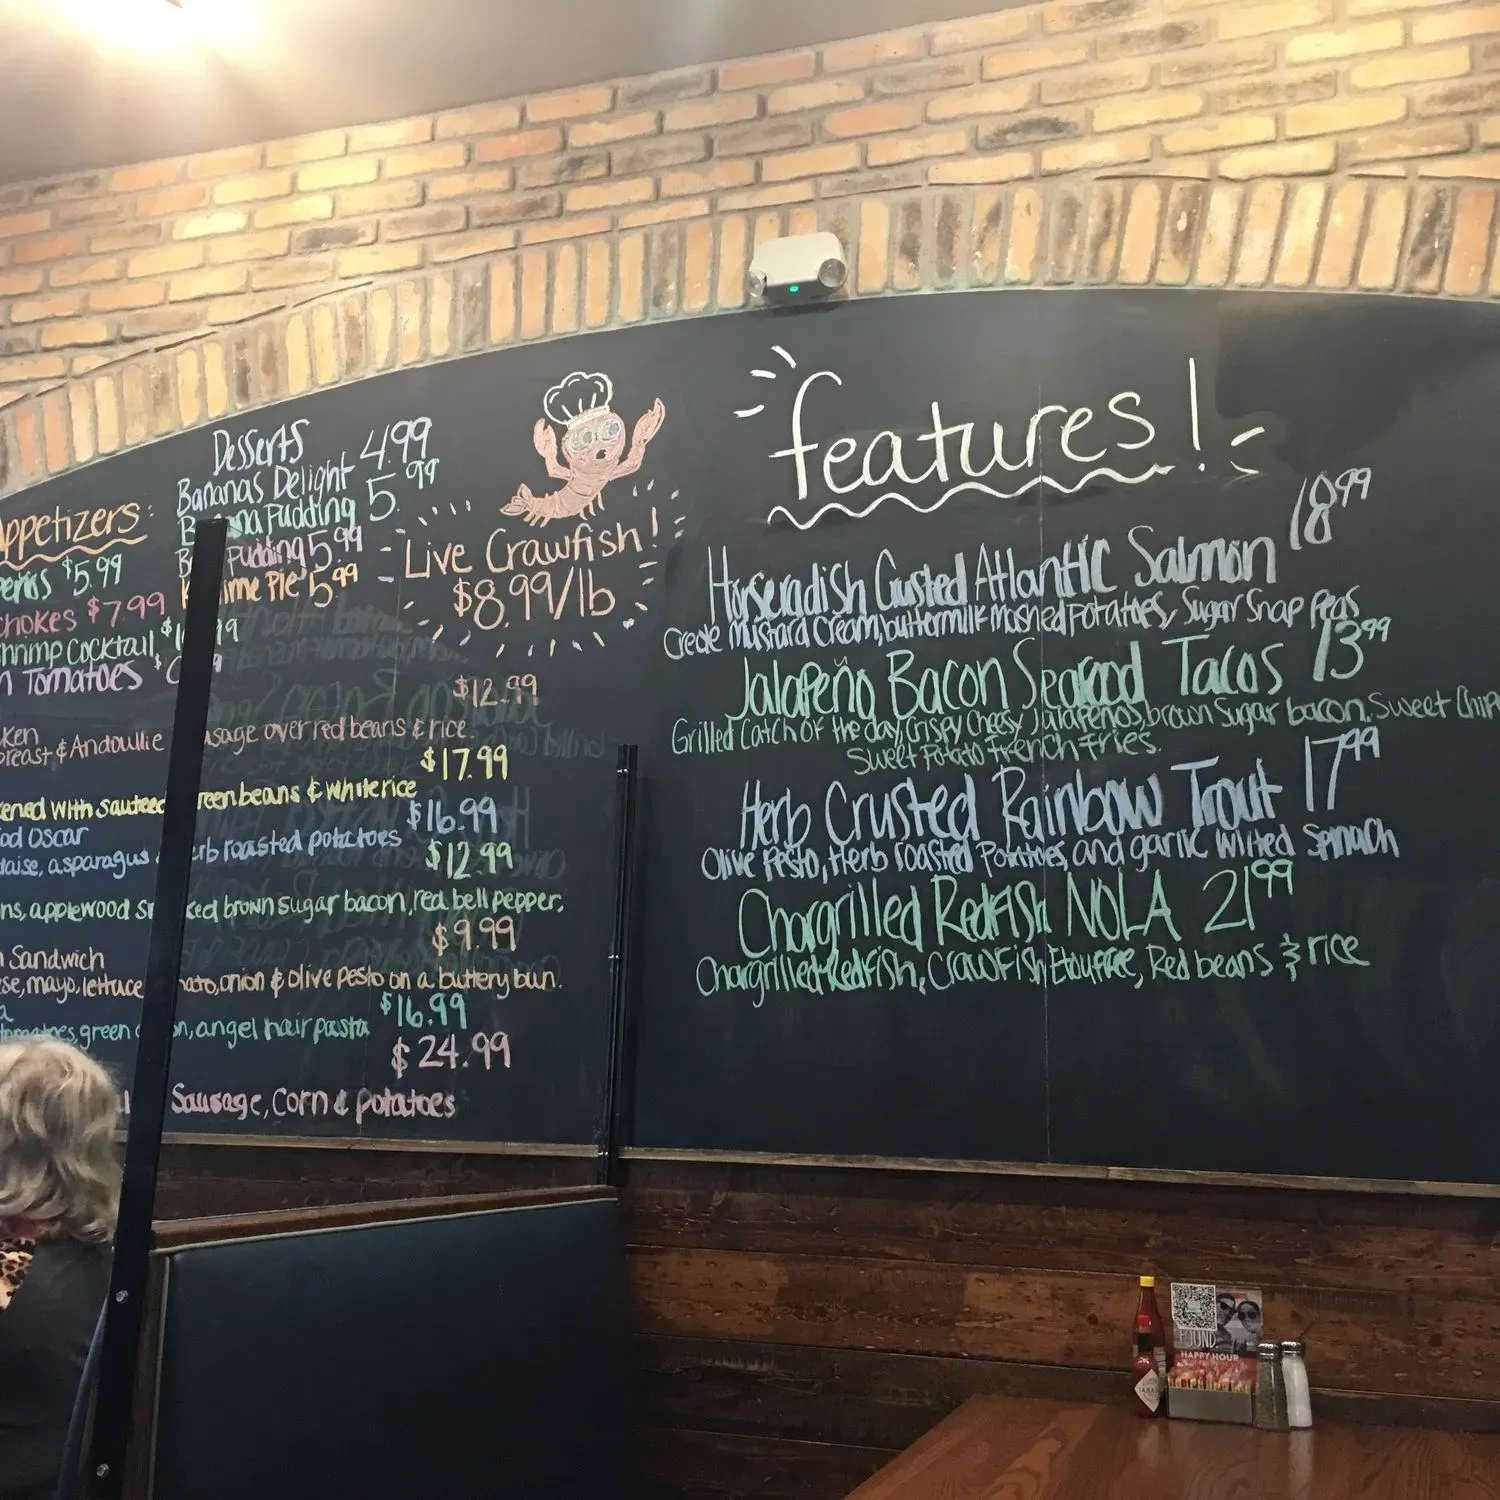 Desserts
Bananas Delight 4.99
Banana Pudding 5.99
Pudding 5.99
ime Pie 5.99
Appetizers:
$5.99
chokes $7.99
Cocktail $
Tomatoes $
Live Crawfish!
$8.99/lb
$12.99
ken
reast & Andouille sausage over red beans & rice.
$17.99
ened with sauteed green beans & white rice
$16.99
od Oscar
daise, asparagus herb roasted potatoes
$12.99
ns, applewood smoked brown sugar bacon, red bell pepper.
$9.99
n Sandwich
ese, mayo, lettuce tomato, onion & olive pesto on a buttery bun.
a $16.99
tomatoes, green onion, angel hair pasta
$24.99
Sausage, Corn & potatoes
features!
Horseradish Crusted Atlantic Salmon 18.99
Creole Mustard Cream, buttermilk mashed potatoes, Sugar Snap Peas
Jalapeño Bacon Seafood Tacos 13.99
Grilled Catch of the day, Crispy Cheesy Jalapeños, brown Sugar bacon. Sweet Chip
Sweet Potato French Fries.
Herb Crusted Rainbow Trout 17.99
Olive Pesto, Herb roasted Potatoes, and garlic Wilted Spinach
Chargrilled Redfish NOLA 21.99
Chargrilled Redfish, Crawfish Etouffee, Red beans & rice
FOUND
HAPPY HOUR
TABASCO